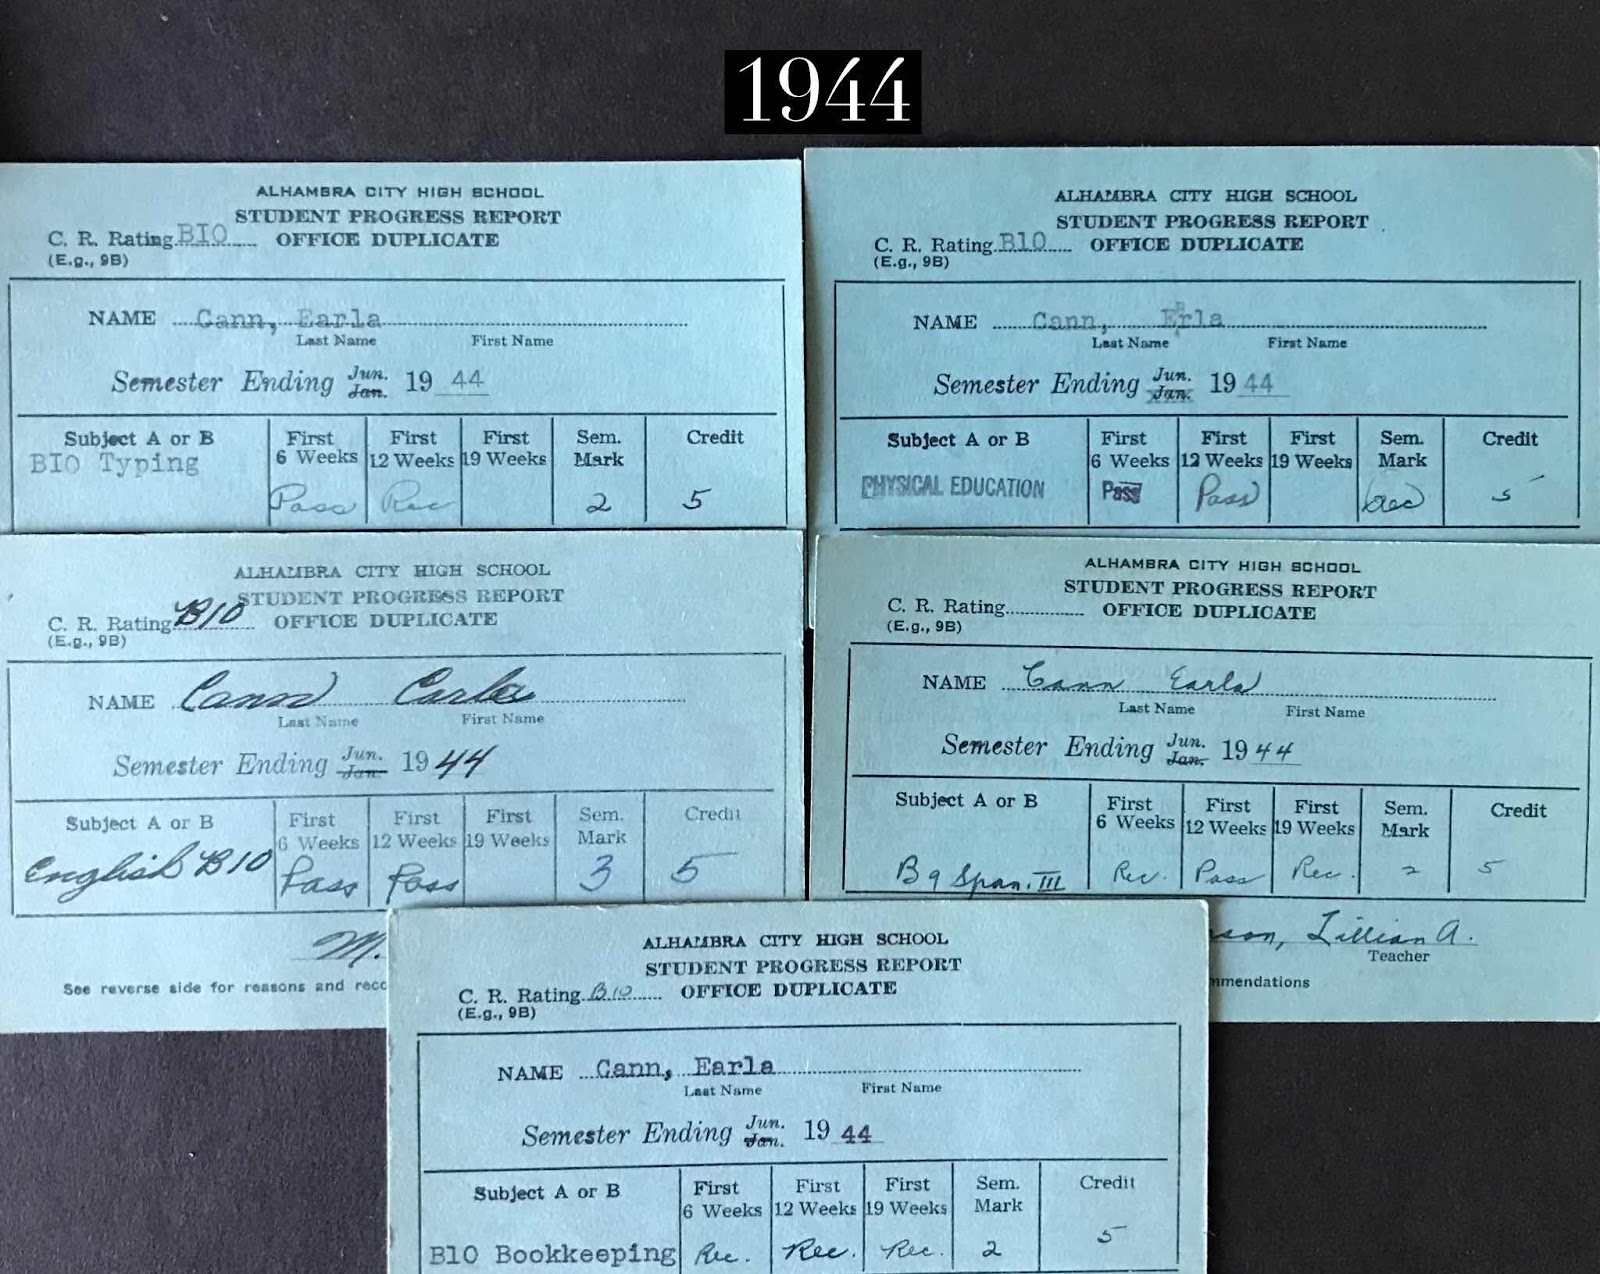 1944
ALHAMBRA CITY HIGH SCHOOL
STUDENT PROGRESS REPORT
C. R. Rating BIO OFFICE DUPLICATE
(E.g., 9B)
NAME Cann, Earla
Last Name First Name
Semester Ending Jun. Jan. 19 44
Subject A or B First 6 Weeks First 12 Weeks First 19 Weeks Sem. Mark Credit
BIO Typing Pass Rec 2 5
ALHAMBRA CITY HIGH SCHOOL
STUDENT PROGRESS REPORT
C. R. Rating B10 OFFICE DUPLICATE
(E.g., 9B)
NAME Cann, Erla
Last Name First Name
Semester Ending Jun. Jan. 19 44
Subject A or B First 6 Weeks First 12 Weeks First 19 Weeks Sem. Mark Credit
PHYSICAL EDUCATION Pass Pass Rec 5
ALHAMBRA CITY HIGH SCHOOL
STUDENT PROGRESS REPORT
C. R. Rating B10 OFFICE DUPLICATE
(E.g., 9B)
NAME Cann Earla
Last Name First Name
Semester Ending Jun. Jan. 19 44
Subject A or B First 6 Weeks First 12 Weeks First 19 Weeks Sem. Mark Credit
English B10 Pass Pass 3 5
M.
See reverse side for reasons and reco
ALHAMBRA CITY HIGH SCHOOL
STUDENT PROGRESS REPORT
C. R. Rating OFFICE DUPLICATE
(E.g., 9B)
NAME Cann Earla
Last Name First Name
Semester Ending Jun. Jan. 19 44
Subject A or B First 6 Weeks First 12 Weeks First 19 Weeks Sem. Mark Credit
B9 Span. III Rec. Pass Rec. 2 5
son, Lillian A.
Teacher
mmendations
ALHAMBRA CITY HIGH SCHOOL
STUDENT PROGRESS REPORT
C. R. Rating B10 OFFICE DUPLICATE
(E.g., 9B)
NAME Cann, Earla
Last Name First Name
Semester Ending Jun. Jan. 19 44
Subject A or B First 6 Weeks First 12 Weeks First 19 Weeks Sem. Mark Credit
B10 Bookkeeping Rec. Rec. Rec. 2 5